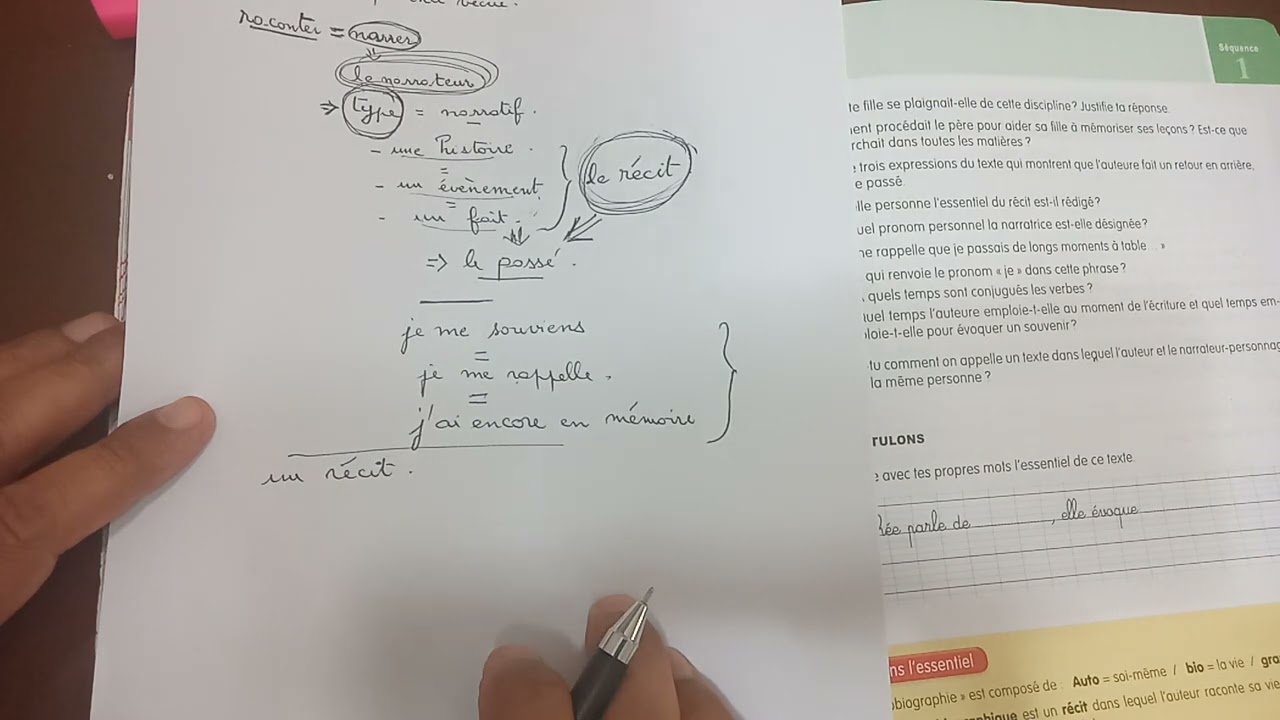 vécue.
raconter = narrer
le narrateur
⇒ type = narratif.
- une histoire.
=
- un évènement
=
- un fait.
le récit
⇒ le passé.
je me souviens
=
je me rappelle.
=
j'ai encore en mémoire
un récit.
Séquence
1
te fille se plaignait-elle de cette discipline? Justifie ta réponse.
ent procédait le père pour aider sa fille à mémoriser ses leçons? Est-ce que
rchait dans toutes les matières?
trois expressions du texte qui montrent que l'auteure fait un retour en arrière,
e passé.
lle personne l'essentiel du récit est-il rédigé?
uel pronom personnel la narratrice est-elle désignée?
ne rappelle que je passais de longs moments à table ... »
qui renvoie le pronom « je » dans cette phrase?
quels temps sont conjugués les verbes?
uel temps l'auteure emploie-t-elle au moment de l'écriture et quel temps em-
ploie-t-elle pour évoquer un souvenir?
tu comment on appelle un texte dans lequel l'auteur et le narrateur-personnag
la même personne?
TULONS
e avec tes propres mots l'essentiel de ce texte.
lée parle de , elle évoque
ns l'essentiel
obiographie » est composé de : Auto = soi-même / bio = la vie / gra
phique est un récit dans lequel l'auteur raconte sa vie